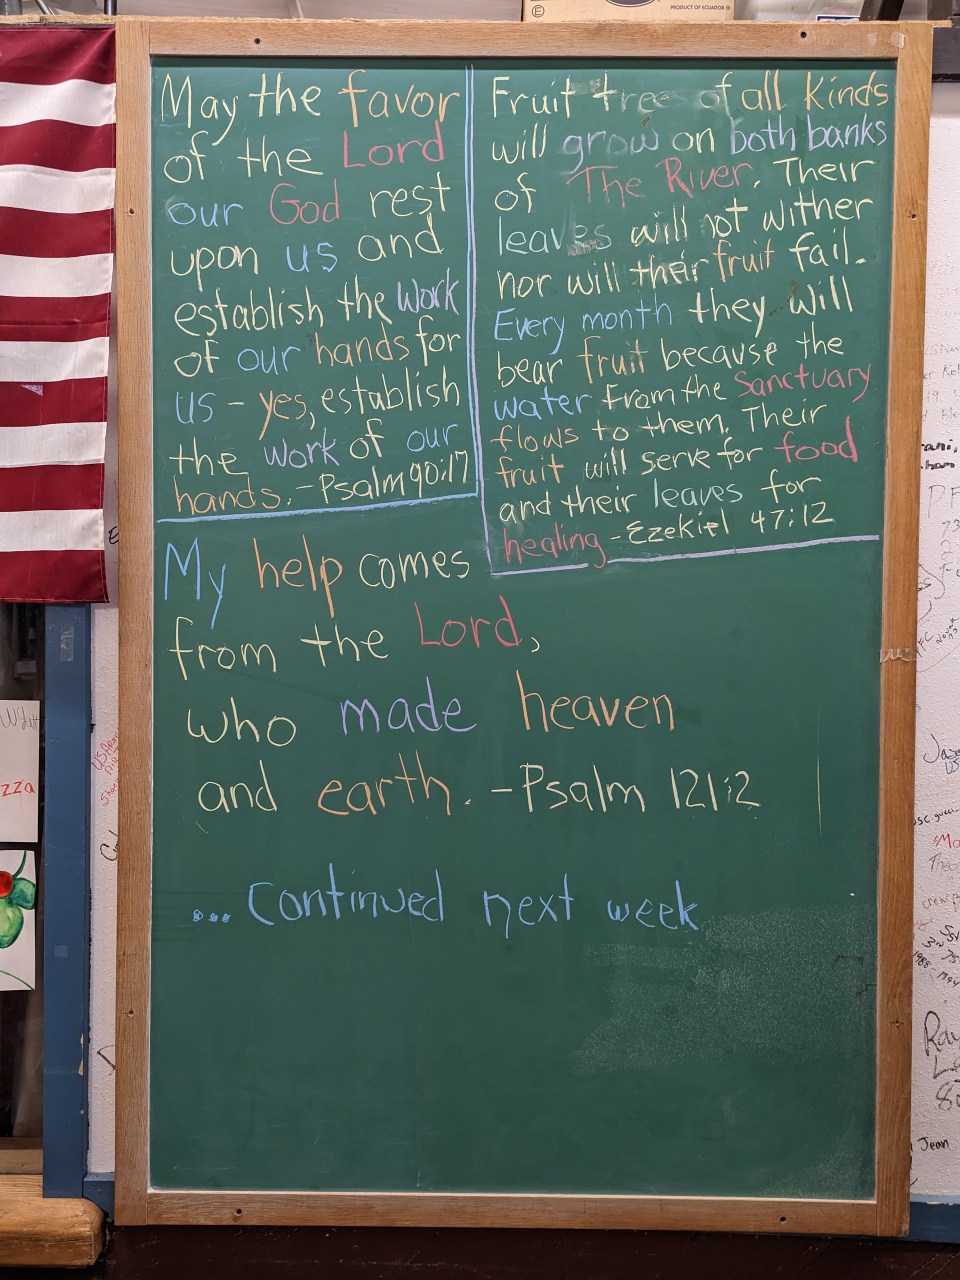 PRODUCT OF ECUADOR
May the favor
of the Lord
our God rest
upon us and
establish the work
of our hands for
us - yes, establish
the work of our
hands. - Psalm 90:17
Fruit trees of all Kinds
will grow on both banks
of The River. Their
leaves will not wither
nor will their fruit fail.
Every month they will
bear fruit because the
water From the Sanctuary
flows to them. Their
fruit will serve for food
and their leaves for
healing - Ezekiel 47:12
My help comes
from the Lord,
who made heaven
and earth. - Psalm 121:2
... Continued next week
zza
Jean